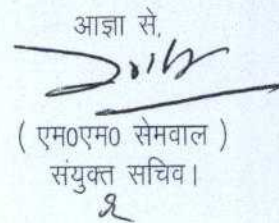 आज्ञा से,
( एम0एम0 सेमवाल )
संयुक्त सचिव।